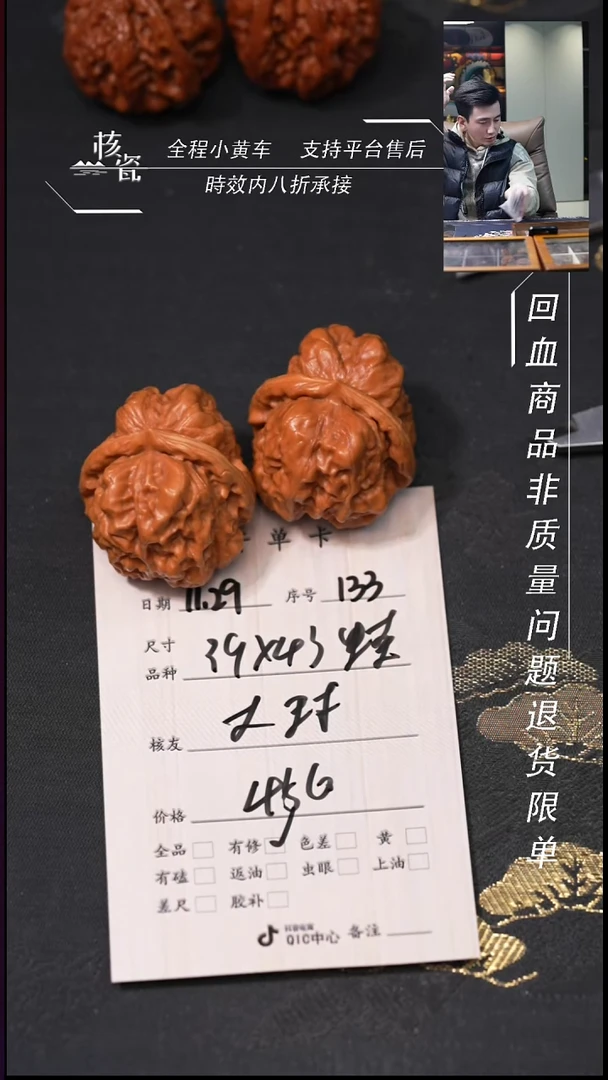 核瓷
全程小黄车 支持平台售后
時效内八折承接
回血商品非质量问题退货限单
单卡
日期 11.29 序号 133
尺寸
品种 39X43
核友
价格 456
全品 有修 色差 黄
有磕 返油 虫眼 上油
差尺 胶补
QIC中心 备注